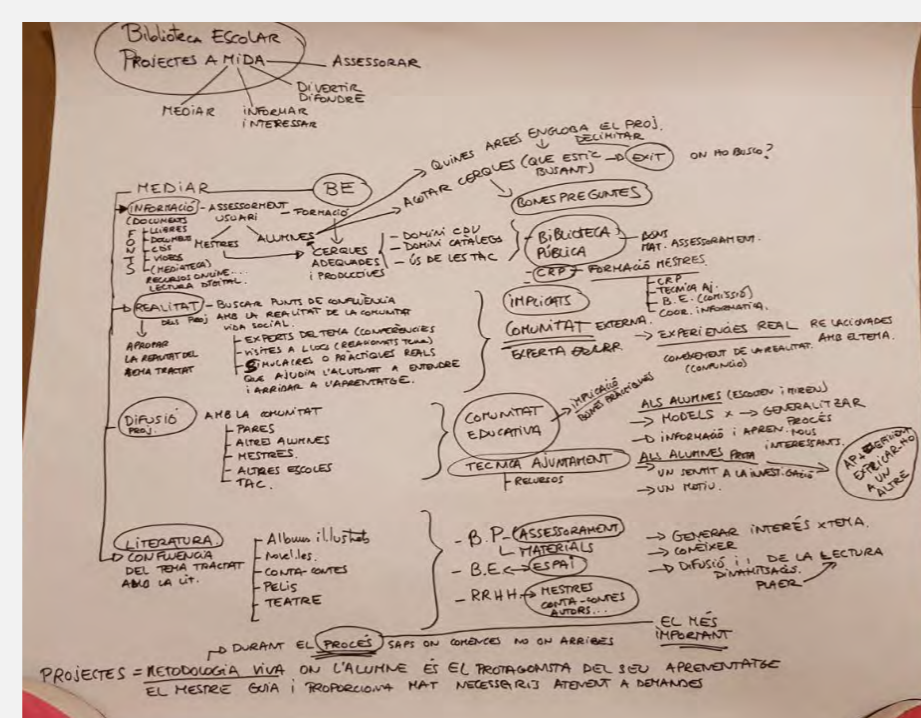 Biblioteca ESCOLAR
PROJECTES A MIDA
ASSESSORAR
DIVERTIR
DIFONDRE
MEDIAR
INFORMAR
INTERESSAR
QUINES AREES ENGLOBA EL PROJ.
DELIMITAR
ACOTAR CERQUES (QUE ESTIC BUSANT) → EXIT ON HO BUSCO?
BONES PREGUNTES
MEDIAR BE
INFORMACIÓ - ASSESSORMENT - FORMACIÓ
(DOCUMENTS USUARI
FONTS
LLIBRES
DOCUMENT
CDS
VIDEOS
(MEDIATECA)
RECURSOS ONLINE...
LECTURA DIGITAL.
MESTRES ALUMNES
CERQUES
ADEQUADES
i PRODUCTIVES
- DOMINI CDU
- DOMINI CATÀLEGS
- ÚS DE LES TAC
- BIBLIOTECA
PÚBLICA
BONS
MAT. ASSESSORAMENT.
- CRP → FORMACIÓ MESTRES.
REALITAT - BUSCAR PUNTS DE CONFLUÈNCIA
DELS PROJ AMB LA REALITAT DE LA COMUNITAT
VIDA SOCIAL.
APROPAR
LA REALITAT DEL
TEMA TRACTAT
- EXPERTS DEL TEMA (CONFERÈNCIES
- VISITES A LLOCS (RELACIONATS TEMA)
- SIMULACRES O PRÀCTIQUES REALS
QUE AJUDIN L'ALUMNAT A ENTENDRE
i ARRIBAR A L'APRENTATGE.
IMPLICATS
- CRP
- TECNICA AJ.
- B.E. (COMISSIÓ)
- COOR. INFORMÀTICA.
COMUNITAT EXTERNA.
EXPERTA
→ EXPERIÈNCIES REAL RELACIONADES
CONEIXEMENT DE LA REALITAT. AMB EL TEMA.
DIFUSIÓ AMB LA COMUNITAT
PROJ.
- PARES
- ALTRES ALUMNES
- MESTRES.
- ALTRES ESCOLES
- TAC.
COMUNITAT
EDUCATIVA
IMPLICACIÓ
BONES PRÀCTIQUES
TECNICA AJUNTAMENT
- RECURSOS
ALS ALUMNES (ESCOLTEN i MIREN)
→ MODELS X → GENERALITZAR
PROCÉS
→ INFORMACIÓ i APREN. NOUS
INTERESSANTS.
ALS ALUMNES
→ UN SENTIT A LA INVESTIGACIÓ
→ UN MOTIU.
EXPLICAR-HO
A UN
ALTRE
LITERATURA.
CONFLUENCIA
DEL TEMA TRACTAT
AMB LA LIT.
- Albums il·lustrats
- Novel·les.
- CONTA-CONTES
- PELIS
- TEATRE
- B.P - ASSESSORAMENT
MATERIALS
- B.E ↔ ESPAI
- RRHH → MESTRES
CONTA-CONTES
AUTORS...
→ GENERAR INTERÉS X TEMA.
→ CONÈIXER
→ DIFUSIÓ i DE LA LECTURA
PLAER
DURANT EL PROCÉS SAPS ON COMENCES NO ON ARRIBES
EL MÉS
IMPORTANT
PROJECTES = METODOLOGIA VIVA ON L'ALUMNE ÉS EL PROTAGONISTA DEL SEU APRENENTATGE
EL MESTRE GUIA i PROPORCIONA MAT NECESSARIS ATENENT A DEMANDES